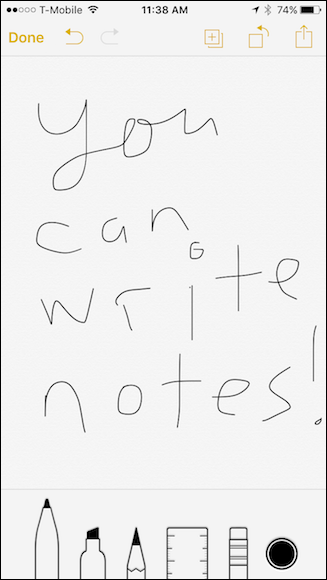 T-Mobile 11:38 AM 74%
Done
you
can
write
notes!